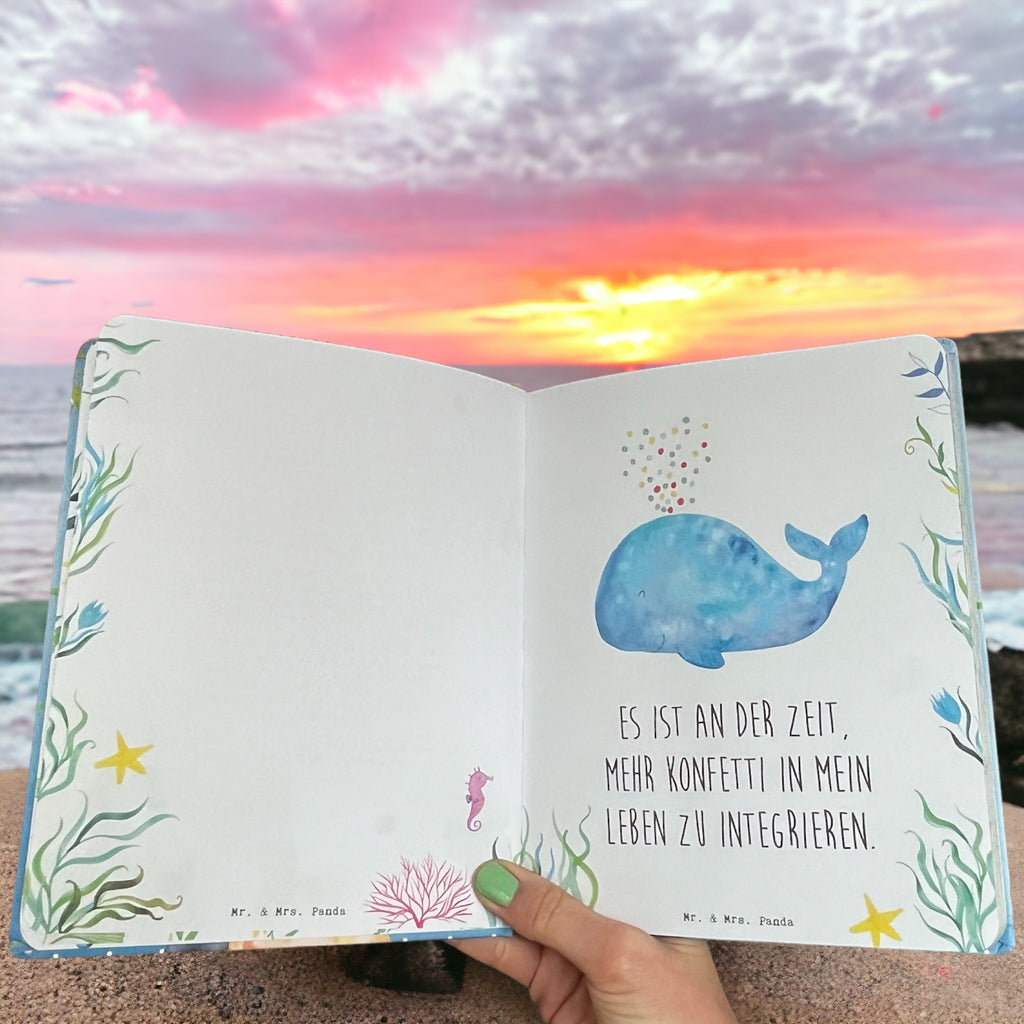 Mr. & Mrs. Panda
ES IST AN DER ZEIT,
MEHR KONFETTI IN MEIN
LEBEN ZU INTEGRIEREN.
Mr. & Mrs. Panda